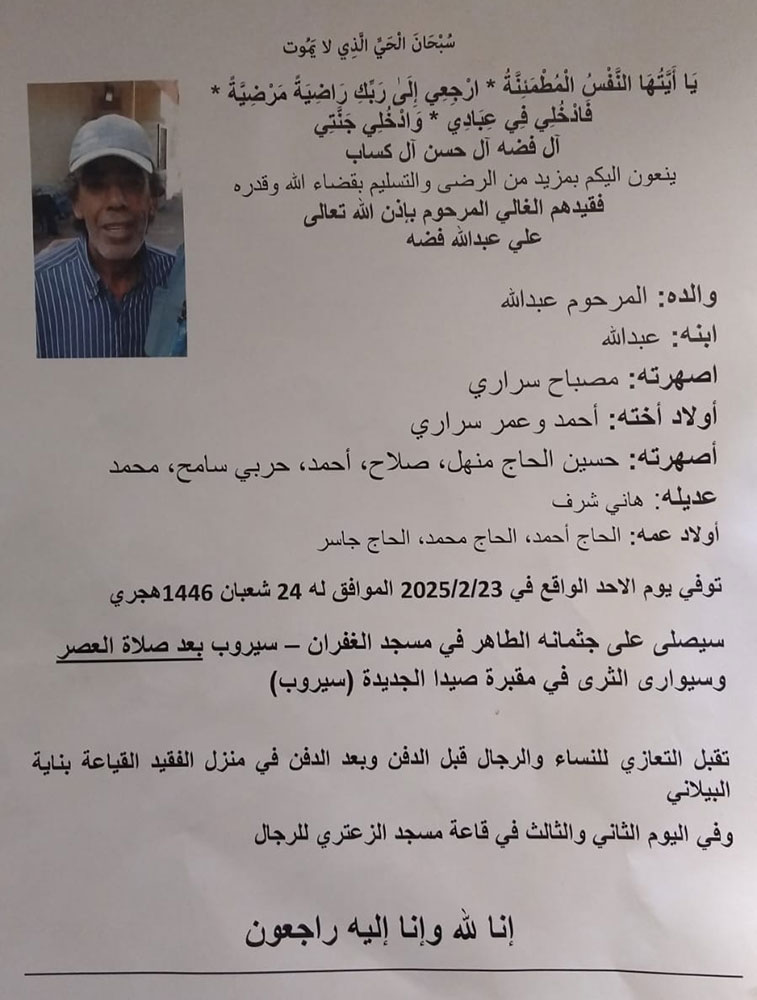 سُبْحَانَ الْحَيِّ الَّذِي لا يَمُوت
يَا أَيَّتُهَا النَّفْسُ الْمُطْمَئِنَّةُ * ارْجِعِي إِلَىٰ رَبِّكِ رَاضِيَةً مَرْضِيَّةً *
فَادْخُلِي فِي عِبَادِي * وَادْخُلِي جَنَّتِي
آل فضه آل حسن آل كساب
ينعون اليكم بمزيد من الرضى والتسليم بقضاء الله وقدره
فقيدهم الغالي المرحوم بإذن الله تعالى
علي عبدالله فضه
والده: المرحوم عبدالله
ابنه: عبدالله
اصهرته: مصباح سراري
أولاد أخته: أحمد وعمر سراري
أصهرته: حسين الحاج منهل، صلاح، أحمد، حربي سامح، محمد
عديله: هاني شرف
أولاد عمه: الحاج أحمد، الحاج محمد، الحاج جاسر
توفي يوم الاحد الواقع في 2025/2/23 الموافق له 24 شعبان 1446هجري
سيصلى على جثمانه الطاهر في مسجد الغفران – سيروب بعد صلاة العصر
وسيوارى الثرى في مقبرة صيدا الجديدة (سيروب)
تقبل التعازي للنساء والرجال قبل الدفن وبعد الدفن في منزل الفقيد القياعة بناية
البيلاني
وفي اليوم الثاني والثالث في قاعة مسجد الزعتري للرجال
إنا لله وإنا إليه راجعون